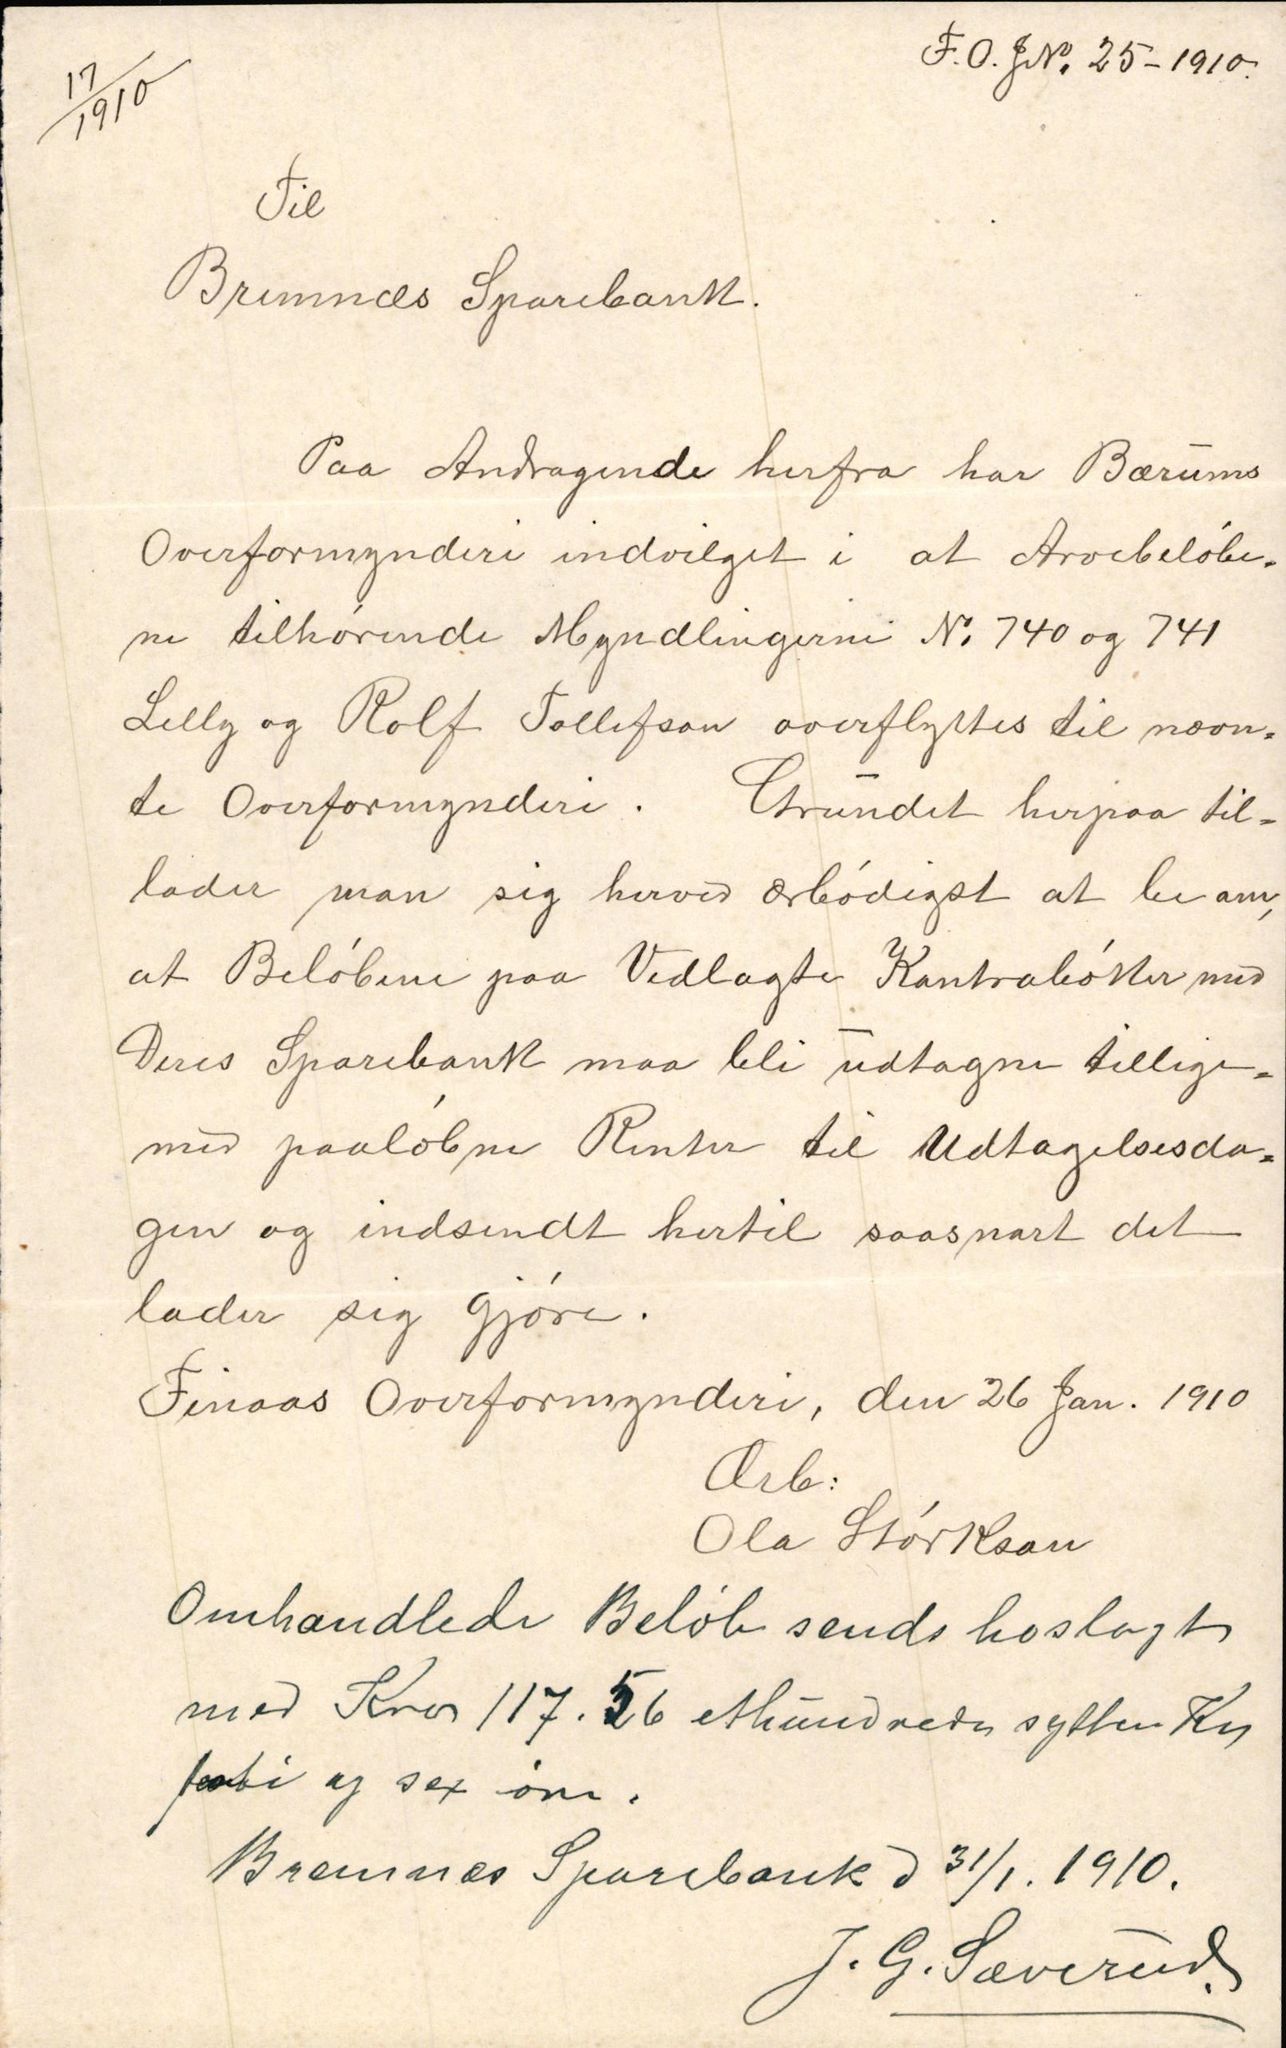 17/1910
F.O.J.No. 25-1910.
Til
Bremnæs Sparebank.
Paa Andragende herfra har Bærums
Overformynderi indvilget i at Arvebeløbe-
ne tilhørende Myndlingerne No. 740 og 741
Lelly og Rolf Tollefson overflyttes til nævn-
te Overformynderi. Grundet herpaa til-
lader man sig herved ærbødigst at be om,
at Beløbene paa Vedlagte Kontrabøker med
Deres Sparebank maa bli udtagne tillige-
med paaløbne Renter til Udtagelsesda-
gen og indsendt hertil saasnart det
lader sig gjøre.
Finaas Overformynderi, den 26 Jan. 1910
Ærb:
Ola Størkson
Omhandlede Beløb sends hoslagt
med Kror 117.56 ethundrede sytten Kr
femti og sex øre.
Bremnæs Sparebank d 31/1. 1910.
J. G. Sæverud